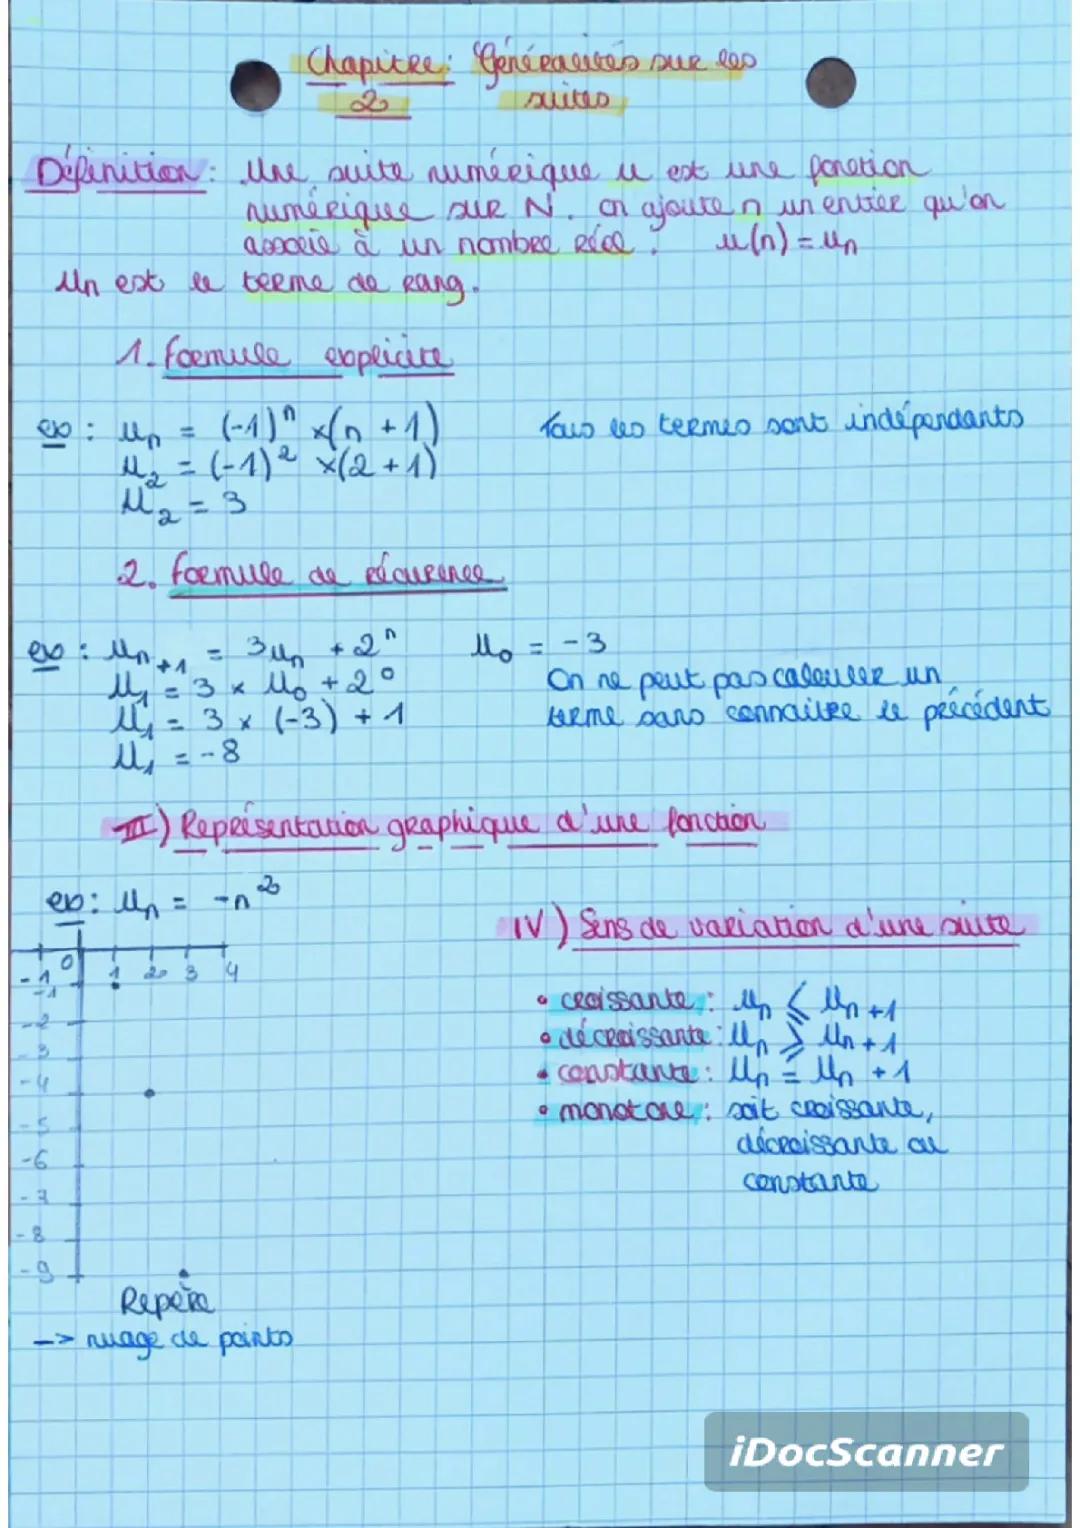 Chapitre: Généralités sur les
2 suites
Définition : Une suite numérique u est une fonction
numérique sur N. On ajoute n un entier qu'on
associe à un nombre réel. u(n) = un
Un est le terme de rang.
1. formule explicite
ex : un = (-1)^n ×(n + 1)
Tous les termes sont indépendants
u2 = (-1)² ×(2 + 1)
u2 = 3
2. formule de récurence
ex : un+1 = 3un + 2^n u0 = -3
u1 = 3 × u0 + 2^0
On ne peut pas calculer un
u1 = 3 × (-3) + 1
terme sans connaitre le précédent
u1 = -8
III) Représentation graphique d'une fonction
ex : un = -n²
-1 0 1 2 3 4
-1
-2
-3
-4
-5
-6
-7
-8
-9
Repère
-> nuage de points
IV) Sens de variation d'une suite
• croissante : un ⩽ un+1
• décroissante : un ⩾ un+1
• constante : un = un+1
• monotone : soit croissante,
décroissante ou
constante
iDocScanner